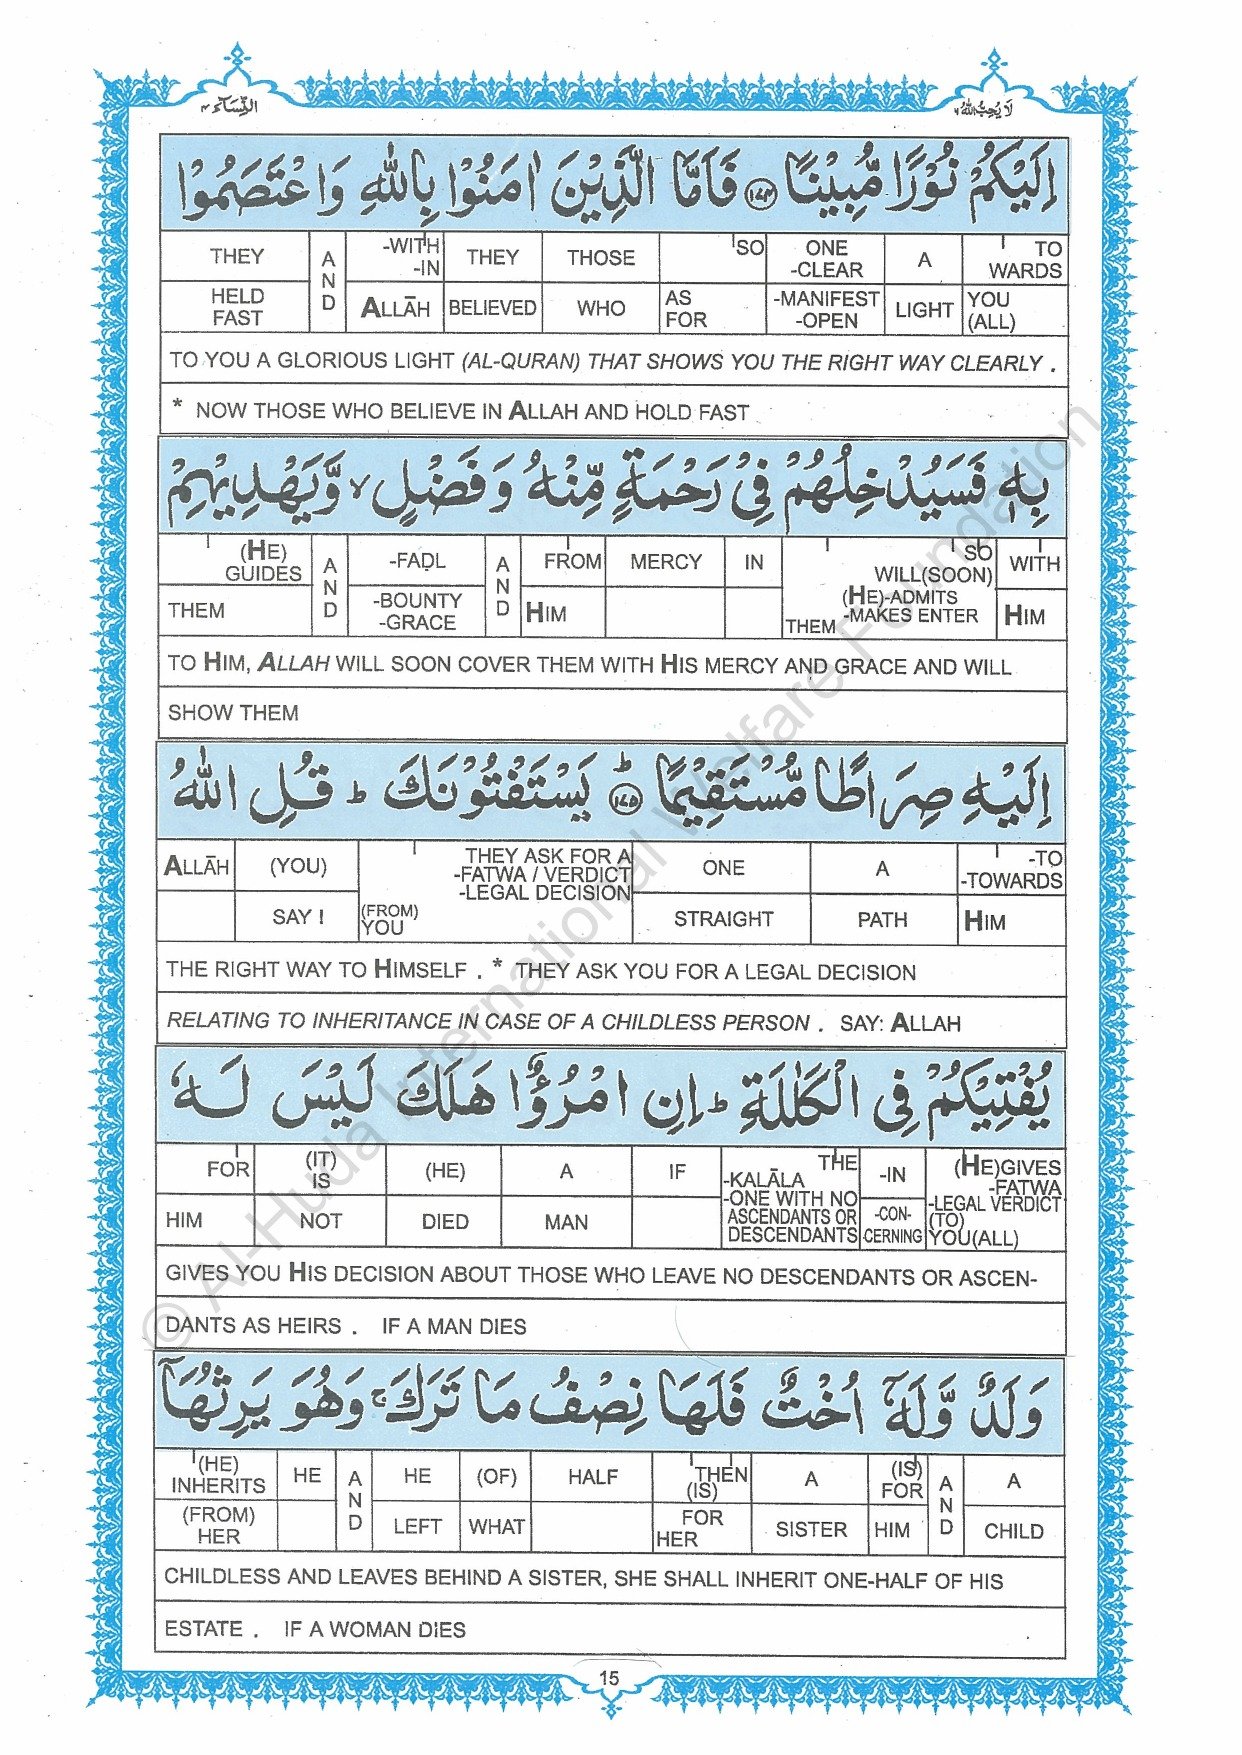 النِّسَآء ٤
لَا يُحِبُّ اللّٰهُ ٦
اِلَيْكُمْ نُوْرًا مُّبِيْنًا ۝١٧٤ فَاَمَّا الَّذِيْنَ اٰمَنُوْا بِاللّٰهِ وَاعْتَصَمُوْا
THEY AND -WITH -IN THEY THOSE SO ONE -CLEAR A TO WARDS
HELD FAST ALLĀH BELIEVED WHO AS FOR -MANIFEST -OPEN LIGHT YOU (ALL)
TO YOU A GLORIOUS LIGHT (AL-QURAN) THAT SHOWS YOU THE RIGHT WAY CLEARLY .
* NOW THOSE WHO BELIEVE IN ALLAH AND HOLD FAST
بِهٖ فَسَيُدْخِلُهُمْ فِيْ رَحْمَةٍ مِّنْهُ وَفَضْلٍ ۙ وَّيَهْدِيْهِمْ
(HE) GUIDES AND -FAḌL AND FROM MERCY IN SO WILL(SOON) WITH
THEM -BOUNTY -GRACE HIM (HE)-ADMITS -MAKES ENTER THEM HIM
TO HIM, ALLAH WILL SOON COVER THEM WITH HIS MERCY AND GRACE AND WILL
SHOW THEM
اِلَيْهِ صِرَاطًا مُّسْتَقِيْمًا ۝١٧٥ؕ يَسْتَفْتُوْنَكَ ؕ قُلِ اللّٰهُ
ALLĀH (YOU) THEY ASK FOR A -FATWA / VERDICT -LEGAL DECISION ONE A -TO -TOWARDS
SAY ! (FROM) YOU STRAIGHT PATH HIM
THE RIGHT WAY TO HIMSELF . * THEY ASK YOU FOR A LEGAL DECISION
RELATING TO INHERITANCE IN CASE OF A CHILDLESS PERSON . SAY: ALLAH
يُفْتِيْكُمْ فِي الْكَلٰلَةِ ؕ اِنِ امْرُؤٌا هَلَكَ لَيْسَ لَهٗ
FOR (IT) IS (HE) A IF THE -KALĀLA -ONE WITH NO -IN (HE)GIVES -FATWA
HIM NOT DIED MAN ASCENDANTS OR DESCENDANTS -CON-CERNING -LEGAL VERDICT (TO) YOU(ALL)
GIVES YOU HIS DECISION ABOUT THOSE WHO LEAVE NO DESCENDANTS OR ASCEN-
DANTS AS HEIRS . IF A MAN DIES
وَلَدٌ وَّلَهٗٓ اُخْتٌ فَلَهَا نِصْفُ مَا تَرَكَ ۚ وَهُوَ يَرِثُهَآ
(HE) INHERITS HE AND HE (OF) HALF THEN (IS) A (IS) FOR AND A
(FROM) HER LEFT WHAT FOR HER SISTER HIM CHILD
CHILDLESS AND LEAVES BEHIND A SISTER, SHE SHALL INHERIT ONE-HALF OF HIS
ESTATE . IF A WOMAN DIES
15
© Al-Huda International Welfare Foundation